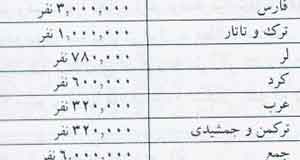 فارس ۳,۰۰۰,۰۰۰ نفر
ترک و تاتار ۱,۰۰۰,۰۰۰ نفر
لر ۷۸۰,۰۰۰ نفر
کرد ۶۰۰,۰۰۰ نفر
عرب ۳۲۰,۰۰۰ نفر
ترکمن و جمشیدی ۳۲۰,۰۰۰ نفر
جمع ۶,۰۰۰,۰۰۰ نفر